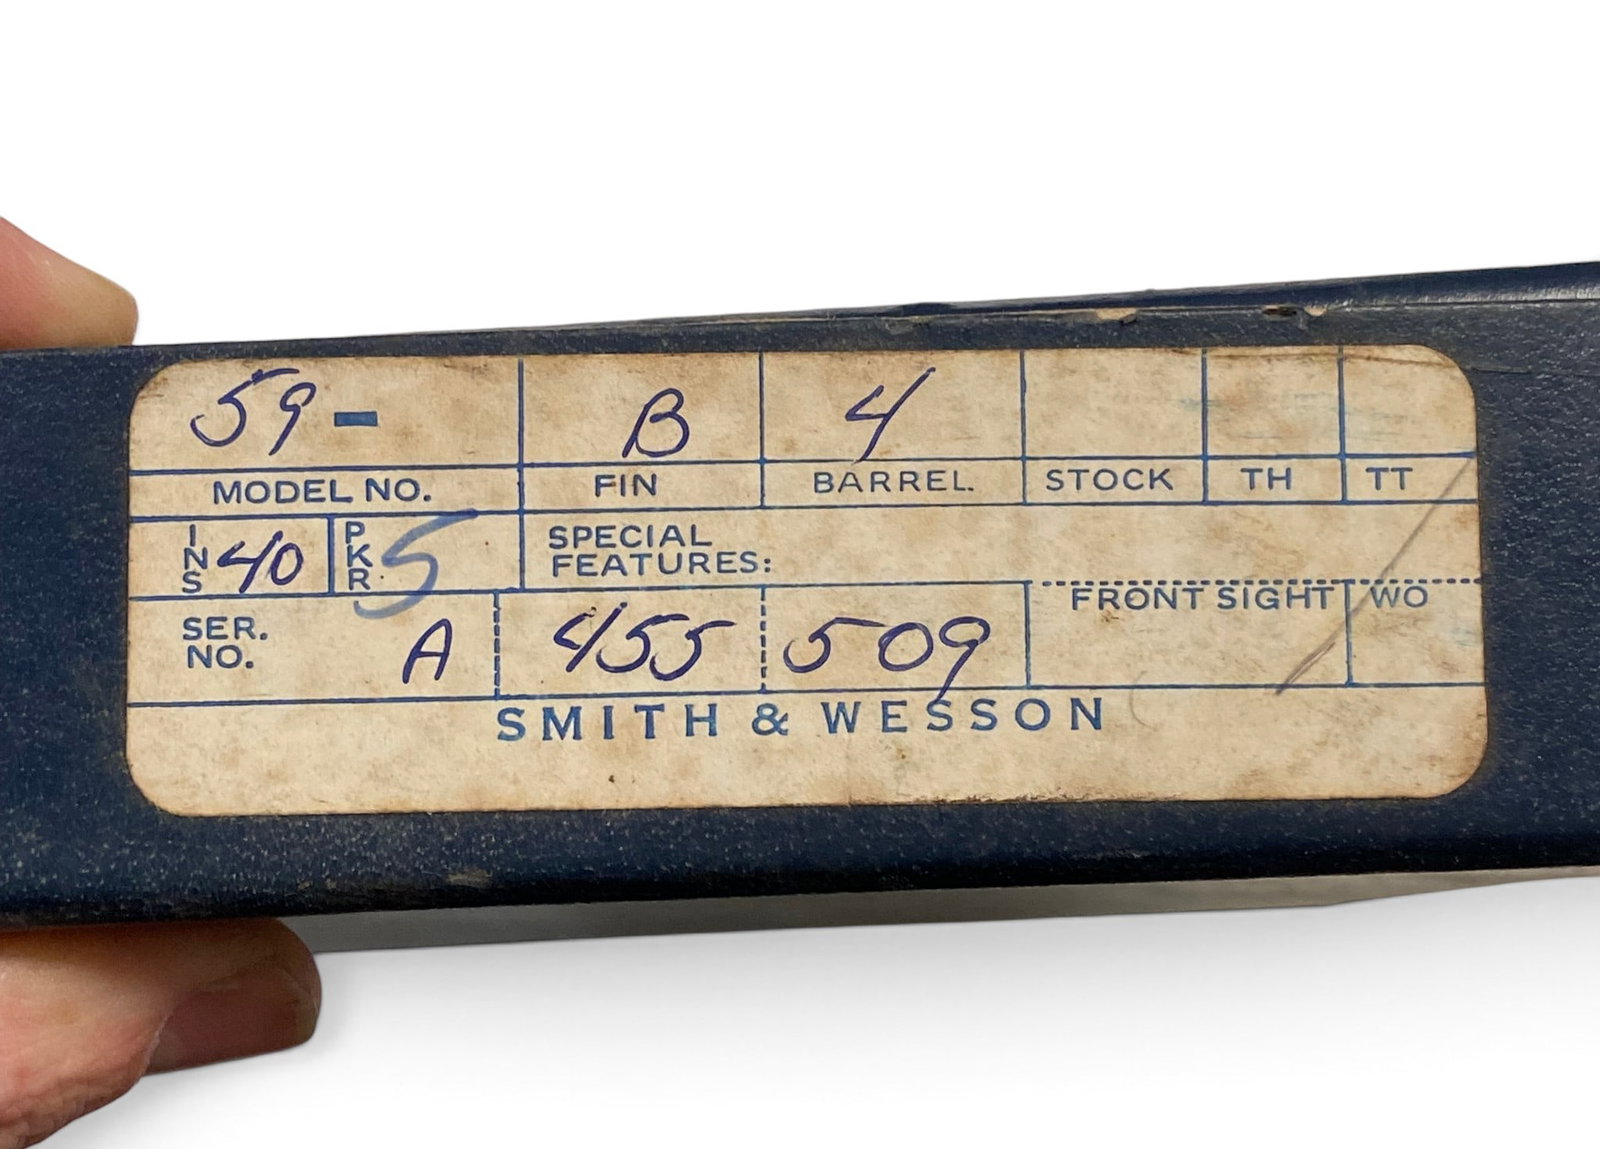 59 - B 4
MODEL NO. FIN BARREL. STOCK TH TT
INS 40 PKR. 5 SPECIAL
FEATURES:
FRONT SIGHT WO
SER.
NO. A 455 509
SMITH & WESSON